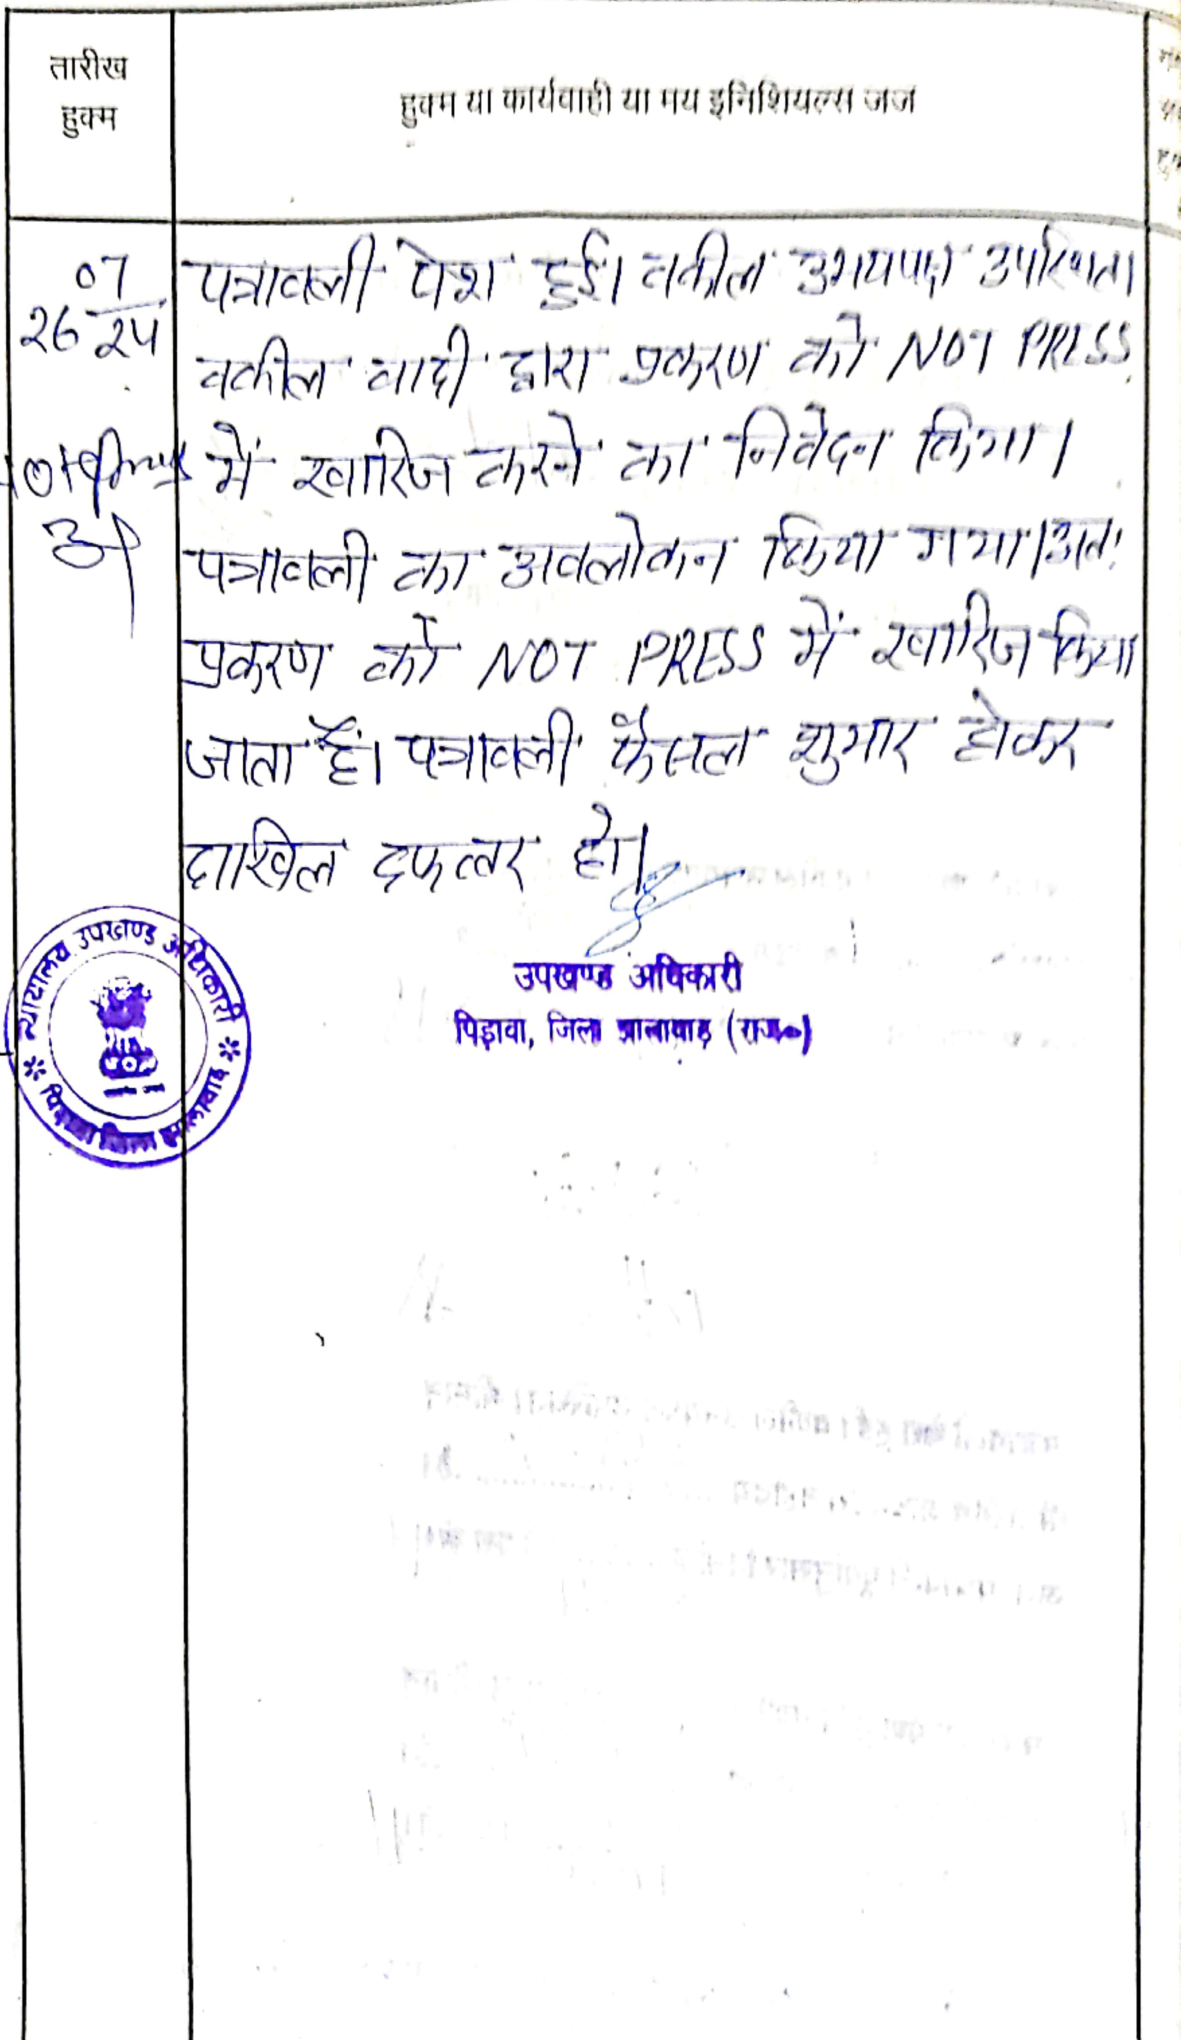 तारीख
हुक्म
हुक्म या कार्यवाही या मय इनिशियल्स जज
07
26 24
पत्रावली पेश हुई। वकील उभयपक्ष उपस्थित।
वकील वादी द्वारा प्रकरण को NOT PRESS
में खारिज करने का निवेदन किया।
पत्रावली का अवलोकन किया गया। अतः
प्रकरण को NOT PRESS में खारिज किया
जाता हैं। पत्रावली फैसल शुमार होकर
दाखिल दफ्तर हो।
उपखण्ड अधिकारी
पिड़ावा, जिला झालावाड़ (राज०)
न्यायालय उपखण्ड अधिकारी
पिड़ावा जिला झालावाड़